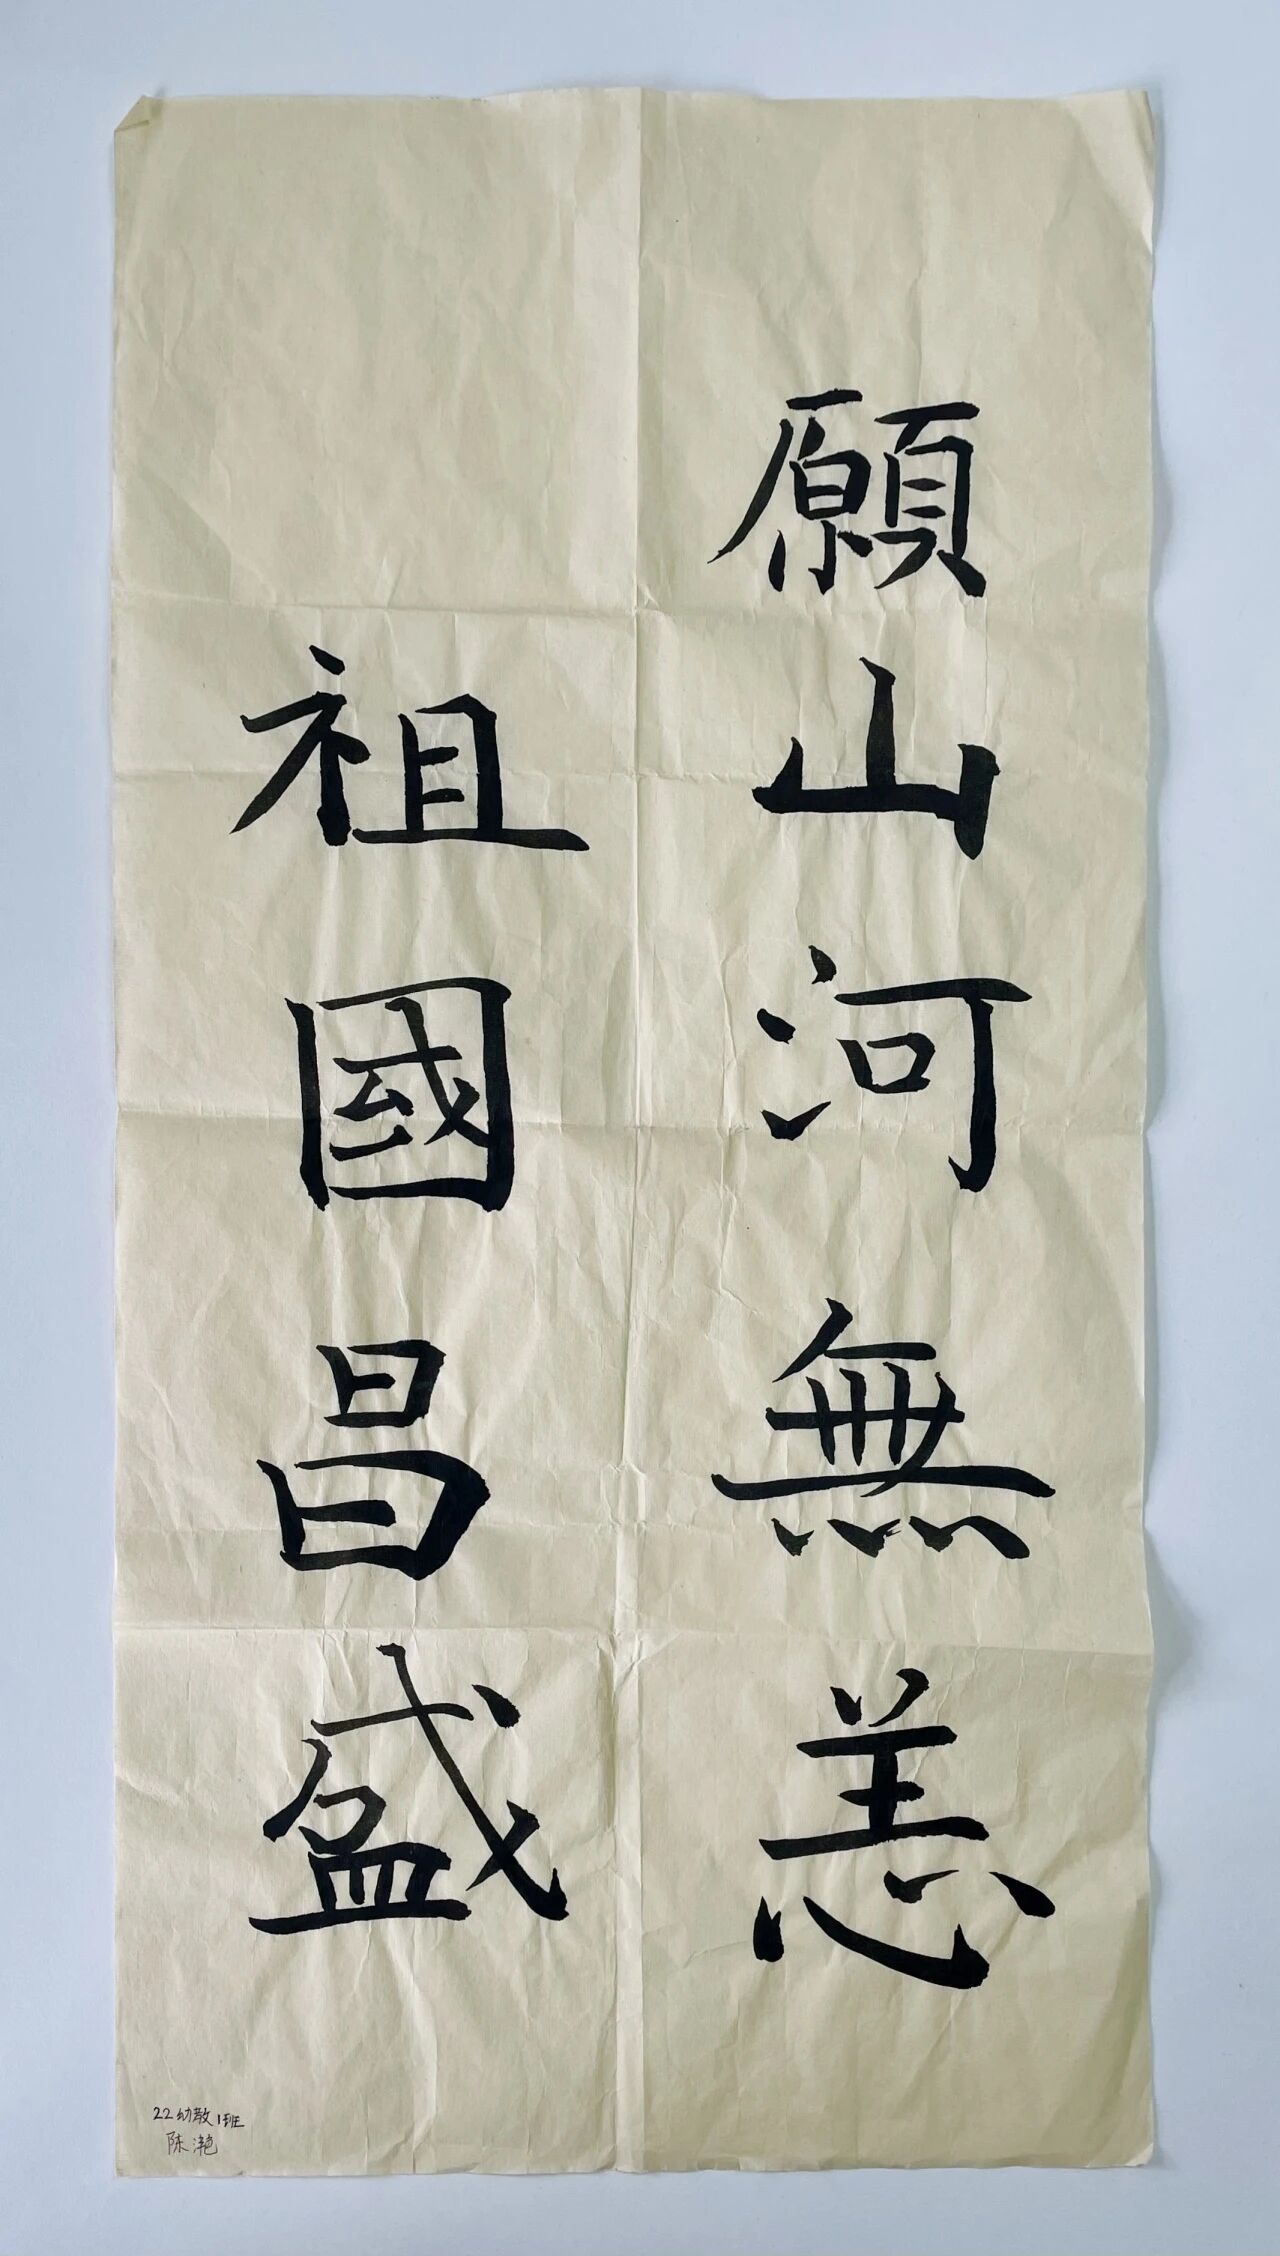 願山河無恙
祖國昌盛
22幼教1班
陈滟